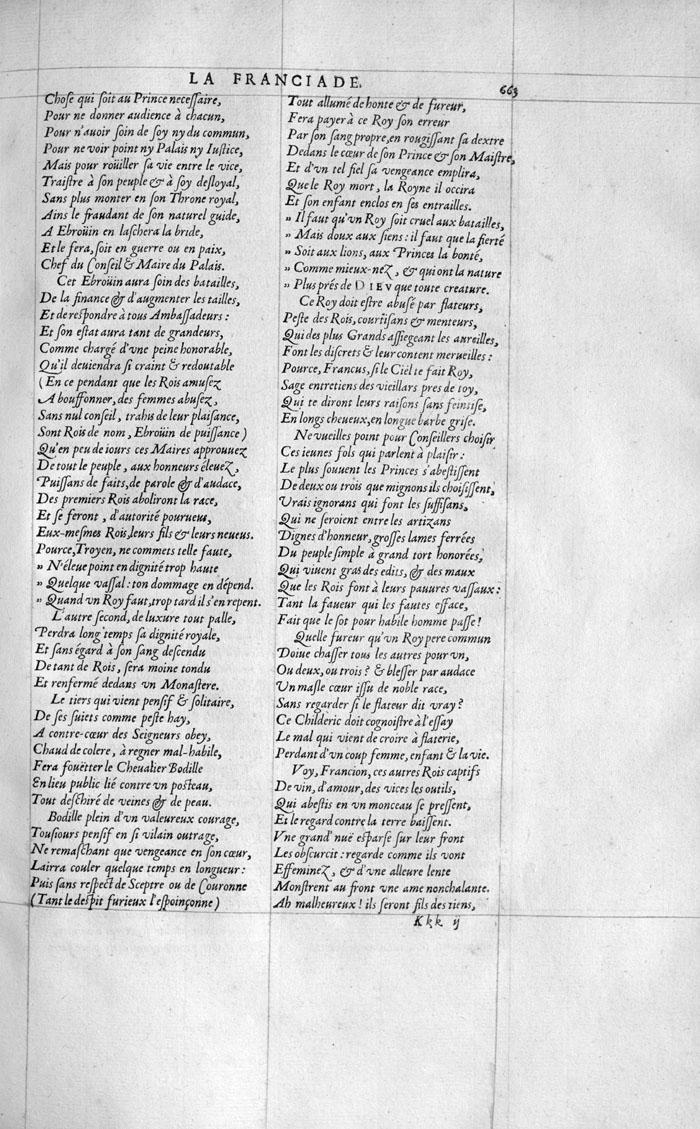 LA FRANCIADE.
663
Chose qui soit au Prince necessaire,
Pour ne donner audience à chacun,
Pour n'auoir soin de soy ny du commun,
Pour ne voir point ny Palais ny Iustice,
Mais pour roüiller sa vie entre le vice,
Traistre à son peuple & à soy desloyal,
Sans plus monter en son Throne royal,
Ains le fraudant de son naturel guide,
A Ebroüin en laschera la bride,
Et le fera, soit en guerre ou en paix,
Chef du Conseil & Maire du Palais.
Cet Ebroüin aura soin des batailles,
De la finance & d'augmenter les tailles,
Et de respondre à tous Ambassadeurs:
Et son estat aura tant de grandeurs,
Comme chargé d'vne peine honorable,
Qu'il deuiendra si craint & redoutable
(En ce pendant que les Rois amusez
A bouffonner, des femmes abusez,
Sans nul conseil, trahis de leur plaisance,
Sont Rois de nom, Ebroüin de puissance)
Qu'en peu de iours ces Maires approuuez
De tout le peuple, aux honneurs éleuez,
Puissans de faits, de parole & d'audace,
Des premiers Rois aboliront la race,
Et se feront, d'autorité pourueus,
Eux-mesmes Rois, leurs fils & leurs neueus.
Pource, Troyen, ne commets telle faute,
" N'éleue point en dignité trop haute
" Quelque vassal: ton dommage en dépend.
" Quand vn Roy faut, trop tard il s'en repent.
L'autre second, de luxure tout palle,
Perdra long temps sa dignité royale,
Et sans égard à son sang descendu
De tant de Rois, sera moine tondu
Et renfermé dedans vn Monastere.
Le tiers qui vient pensif & solitaire,
De ses suiets comme peste hay,
A contre-cœur des Seigneurs obey,
Chaud de colere, à regner mal-habile,
Fera fouëtter le Cheualier Bodille
En lieu public lié contre vn posteau,
Tout deschiré de veines & de peau.
Bodille plein d'vn valeureux courage,
Tousiours pensif en si vilain outrage,
Ne remaschant que vengeance en son cœur,
Lairra couler quelque temps en longueur:
Puis sans respect de Sceptre ou de Couronne
(Tant le despit furieux l'espoinçonne)
Tout allumé de honte & de fureur,
Fera payer à ce Roy son erreur
Par son sang propre, en rougissant sa dextre
Dedans le cœur de son Prince & son Maistre,
Et d'vn tel fiel sa vengeance emplira,
Que le Roy mort, la Royne il occira
Et son enfant enclos en ses entrailles.
" Il faut qu'vn Roy soit cruel aux batailles,
" Mais doux aux siens: il faut que la fierté
" Soit aux lions, aux Princes la bonté,
" Comme mieux-nez, & qui ont la nature
" Plus prés de DIEV que toute creature.
Ce Roy doit estre abusé par flateurs,
Peste des Rois, courtisans & menteurs,
Qui des plus Grands assiegeant les aureilles,
Font les discrets & leur content merueilles:
Pource, Francus, si le Ciel te fait Roy,
Sage entretiens des vieillars pres de toy,
Qui te diront leurs raisons sans feintise,
En longs cheueux, en longue barbe grise.
Ne vueilles point pour Conseillers choisir
Ces ieunes fols qui parlent à plaisir:
Le plus souuent les Princes s'abestissent
De deux ou trois que mignons ils choisissent,
Vrais ignorans qui font les suffisans,
Qui ne seroient entre les artizans
Dignes d'honneur, grosses lames ferrées
Du peuple simple à grand tort honorées,
Qui viuent gras des edits, & des maux
Que les Rois font à leurs pauures vassaux:
Tant la faueur qui les fautes efface,
Fait que le sot pour habile homme passe!
Quelle fureur qu'vn Roy pere commun
Doiue chasser tous les autres pour vn,
Ou deux, ou trois? & blesser par audace
Vn masle cœur issu de noble race,
Sans regarder si le flateur dit vray?
Ce Childeric doit cognoistre à l'essay
Le mal qui vient de croire à flaterie,
Perdant d'vn coup femme, enfant & la vie.
Voy, Francion, ces autres Rois captifs
De vin, d'amour, des vices les outils,
Qui abestis en vn monceau se pressent,
Et le regard contre la terre baissent.
Vne grand' nuë esparse sur leur front
Les obscurcit: regarde comme ils vont
Effeminez, & d'vne alleure lente
Monstrent au front vne ame nonchalante.
Ah malheureux! ils seront fils des tiens,
Kkk ij